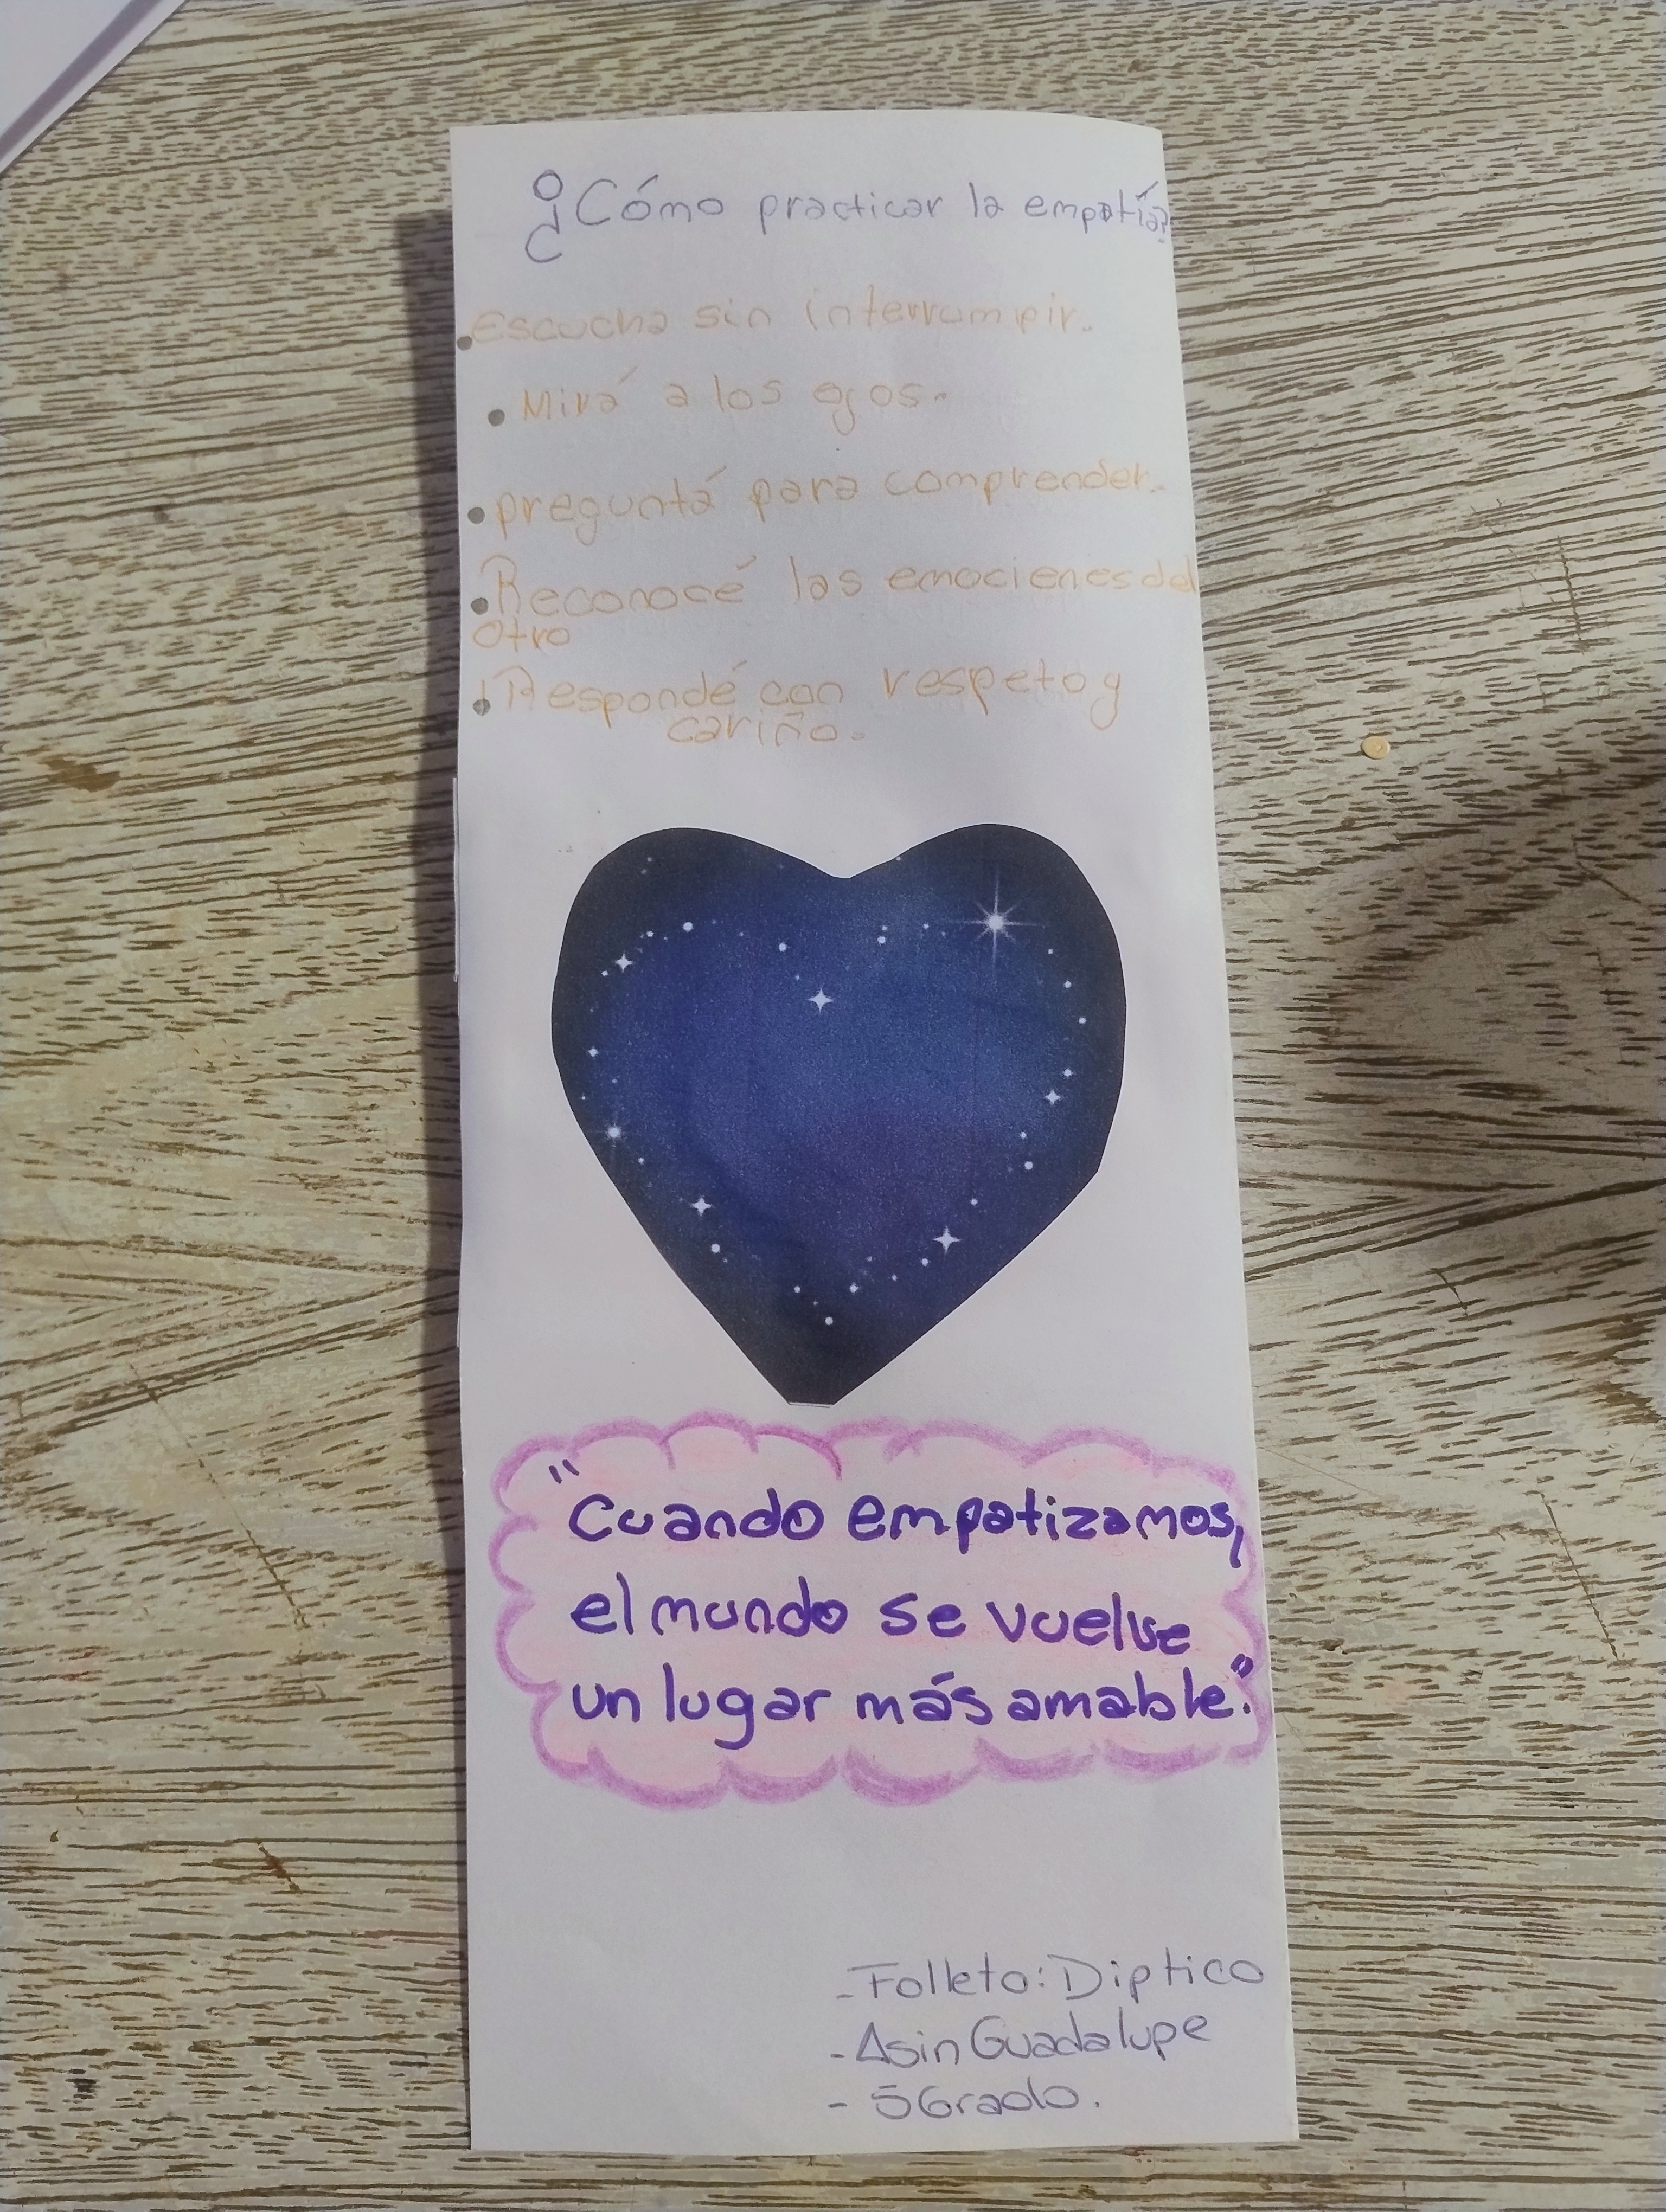 ¿Cómo practicar la empatía?
• Escucha sin interrumpir.
• Mirá a los ojos.
• preguntá para comprender.
• Reconocé las emociones del
otro
• Respondé con respeto y
cariño.
"Cuando empatizamos,
el mundo se vuelve
un lugar más amable."
- Folleto: Diptico
- Asin Guadalupe
- 5 Grado.